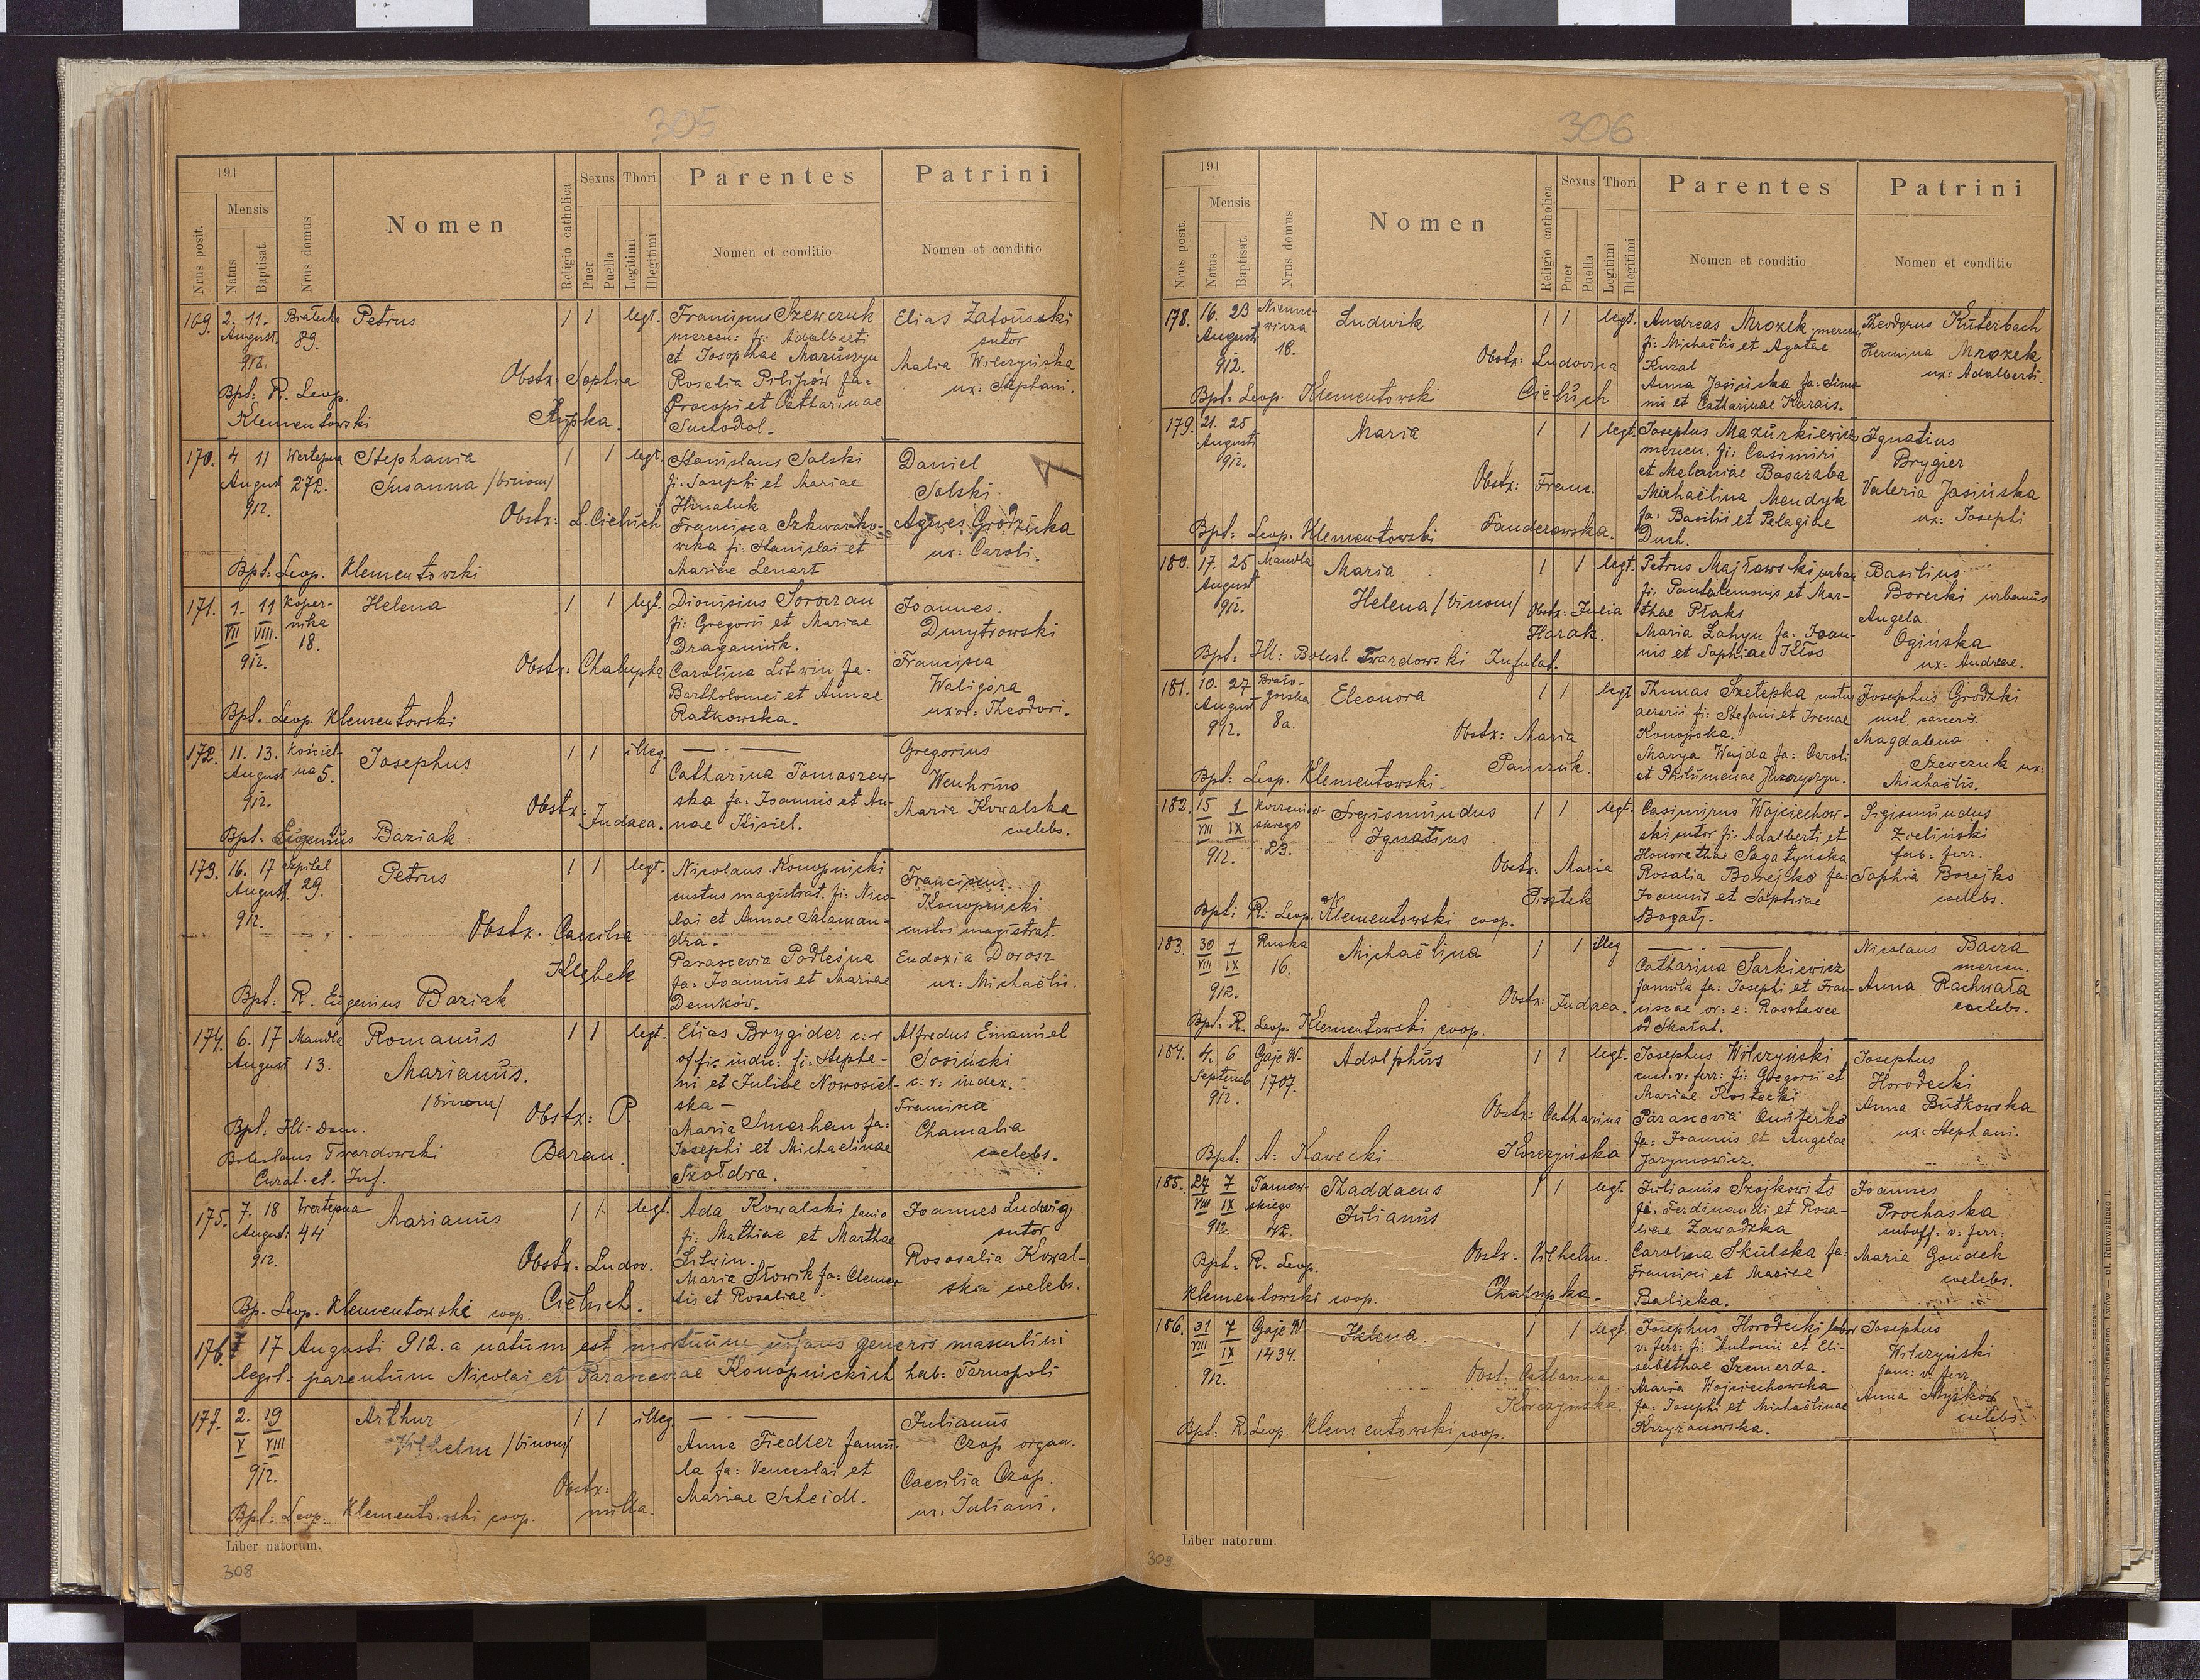 305
191
Nrus posit.
Mensis
Natus
Baptisat.
Nrus domus
Nomen
Religio catholica
Sexus
Puer
Puella
Thori
Legitimi
Illegitimi
Parentes
Nomen et conditio
Patrini
Nomen et conditio
169. 2. 11. 89. Petrus 1 1 legt.
August.
912.
Bpt: R. Leop.
Klementowski
Obstx Sophia
Franciscus Szewczuk
mercen: fi: Adalberti
et Josephae
Rosalia Pilipów fa:
Procopi et Catharinae
Suchodol.
Elias
sutor
Malia Wilczyńska
ux: Stephani.
170. 4 11 Wertepna Stephania 1 1 legt.
August 272. Susanna /binom/
912.
Obstx: L. Cieluch
Bpt: Leop. Klementowski
Stanislaus Solski
fi: Josephi et Mariae
Hrnaluk
Francisca Szkwarko-
wska fi: Stanislai et
Mariae Lenart
Daniel
Solski.
Agnes Grodzicka
ux: Caroli.
171. 1. 11 Koper- Helena 1 1 legt.
VII VIII. nika
912. 18.
Obstx: Chalupka
Bpt. Leop. Klementowski
Dionisius Soroczan
fi: Gregorii et Mariae
Draganiuk.
Carolina Litwin fa:
Bartholomei et Annae
Ratkowska.
Joannes.
Dmytrowski
Francisca
Waligóra
uxor: Theodori.
172. 11. 13. Kościel- Josephus 1 1 illeg.
August na 5.
912.
Obstx: Judaea.
Bpt: Eugenius Baziak
Catharina Tomaszew-
ska fa: Joannis et An-
nae Kisiel.
Gregorius
Wenhrino
Maria Kowalska
coelebs.
173. 16. 17 Szpital Petrus 1 1 legt.
August. 29.
912.
Obstx. Caecilia
Klębek
Bpt: R. Eugenius Baziak
Nicolaus Konopnicki
custos magistrat. fi: Nico-
lai et Annae Salaman-
dra.
Parascevia Podleśna
fa: Joannis et Mariae
Demków.
Franciscus
Konopnicki
custos magistrat.
Eudoxia Dorosz
ux: Michaëlis.
174. 6. 17 Mandla Romanus 1 1 legt.
August 13. Marianus.
/binom/
Obstx: P.
Baran.
Bpt: Ill: Dom.
Boleslaus Twardowski
Curat. et. Inf.
Elias Brygider c: r
offic. indic: fi: Stepha-
ni et Juliae Nowosiel-
ska -
Maria Smerhan fa:
Josephi et Michaelinae
Szołdra.
Alfredus Emanuel
Josiński
c: r: index.
Francisca
Chamalia
coelebs.
175. 7. 18 Wertepna Marianus 1 1. legt.
Augusti 44
912.
Obstx: Ludov.
Cieluch.
Bp. Leop. Klementowski coop.
Ada Kowalski lanio
fi: Mathiae et Marthae
Litwin.
Maria Słowik fa: Clemen-
tis et Rosaliae
Joannes Ludwig
sutor
Rososalia Kowal-
ska coelebs.
176. 17 Augusti 912. a natum est mortuum infans generis masculini
legit: parentum Nicolai et Parasceviae Konopnickich hab: Tarnopoli
177. 2. 19 Arthur 1 1 illeg.
V VIII Vilhelm /binom/
912.
Obstx:
nulla.
Bpt: Leop. Klementowski coop.
Anna Fiedler famu-
la fa: Venceslai et
Mariae Scheidl.
Julianus
Czop organ.
Caecilia Czop.
ux: Juliani.
Liber natorum.
308
306
191
Nrus posit.
Mensis
Natus
Baptisat.
Nrus domus
Nomen
Religio catholica
Sexus
Puer
Puella
Thori
Legitimi
Illegitimi
Parentes
Nomen et conditio
Patrini
Nomen et conditio
178. 16. 23 Ludwik 1 1 legt.
Augusti 18.
912.
Obstx: Ludovica
Cieluch
Bpt: Leop. Klementowski
Andreas Mrozek mercen.
fi: Michaëlis et Agatae
Kuzal
Anna Jasińska fa: Simo
nis et Catharinae Karais.
Theodorus Kuterbach
Hermina Mrozek
ux: Adalberti.
179. 21. 25 Maria 1 1 legt.
Augusti
912.
Obstx: Franc.
Fanderowska.
Bpt: Leop. Klementowski
Josephus Mazurkiewicz
mercen. fi: Casimiri
et Melaniae Basaraba
Michaëlina Mendyk
fa: Basilii et Pelagiae
Duch.
Ignatius
Brygier
Valeria Jasińska
ux: Josephi
180. 17. 25 Mandla Maria 1 1 legt.
August Helena /binom/
912.
Obstx: Julia
Harak.
Bpt: Ill: Bolesl Twardowski Infulat.
Petrus Majławski urban
fi: Pantalemonis et Mar-
thae Płaks
Maria Lahyn fa: Joan-
nis et Sophiae Kłos
Basilius
Borecki urbanus
Angela
Ogińska
ux: Andreae.
181. 10. 27 Eleonora 1 1 legt
August 8a.
912.
Obstx: Maria
Panczuk.
Bpt: Leop. Klementowski.
Thomas Szetepka custos
aerarii fi: Stefani et Irenae
Konopska.
Marya Wajda fa: Caroli
et Philumenae
Josephus Grodzki
cust. carceris.
Magdalena
Szewczuk ux:
Michaëlis.
182. 15 1 Korzeniow- Sigismundus 1 1 legt.
VIII IX skiego Ignatius
912. 23.
Obstx: Maria
Pisztek
Bpt: R: Leop. Klementowski coop.
Casimirus Wojciechow-
ski sutor fi: Adalberti et
Honorathae Sagatyńska
Rosalia Borejko fa:
Joannis et Sophiae
Bogatj.
Sigismundus
Zieliński
fab: ferr.
Sophia Borejko
coelebs.
183. 30 1 Ruska Michaëlina 1 1 illeg
VIII IX 16.
912.
Obstx: Judaea.
Bpt: R. Leop. Klementowski coop.
Catharina Sarkiewicz
famula fa: Josephi et Fran-
ciscae or: e: Rosztawce
od Skałat.
Nicolaus Bacza
mercen.
Anna Rachwała
coelebs.
184. 4. 6 Gaje W. Adolphus 1 1 legt.
Septemb 1707.
912.
Obstx: Catharina
Korczyńska
Bpt: A: Kawecki
Josephus Wilczyński
cust. v: ferr: fi: Gregorii et
Mariae Kostecki
Parascevia Onuferko
fa: Joannis et Angelae
Jarymowicz.
Josephus
Horodecki
Anna Butkowska
ux: Stephani.
185. 27 7 Tarnow- Thaddaeus 1 1 legt.
VIII IX skiego Julianus
912. 42.
Obstx: Vilhelm.
Chalupka.
Bpt: R. Leop.
Klementowski coop.
Julianus Szajkowits
fi: Ferdinandi et Rosa-
liae Zawadzka
Carolina Skulska fa:
Francisci et Mariae
Balicka.
Joannes
Prochaska
suboff: v: ferr:
Maria Gondek
coelebs.
186. 31 7 Gaje W Helena. 1 1 legt
VIII IX 1434.
912.
Obst: Catharina
Korczyńska.
Bpt: R. Leop. Klementowski coop.
Josephus Horodecki labor
v: ferr: fi: Antonii et Eli-
sabethae Szemerda.
Maria Wojciechowska
fa: Josephi et Michaëlinae
Krzyżanowska.
Josephus
Wilczyński
fam: v: ferr.
Anna Myśków
coelebs.
Liber natorum.
309